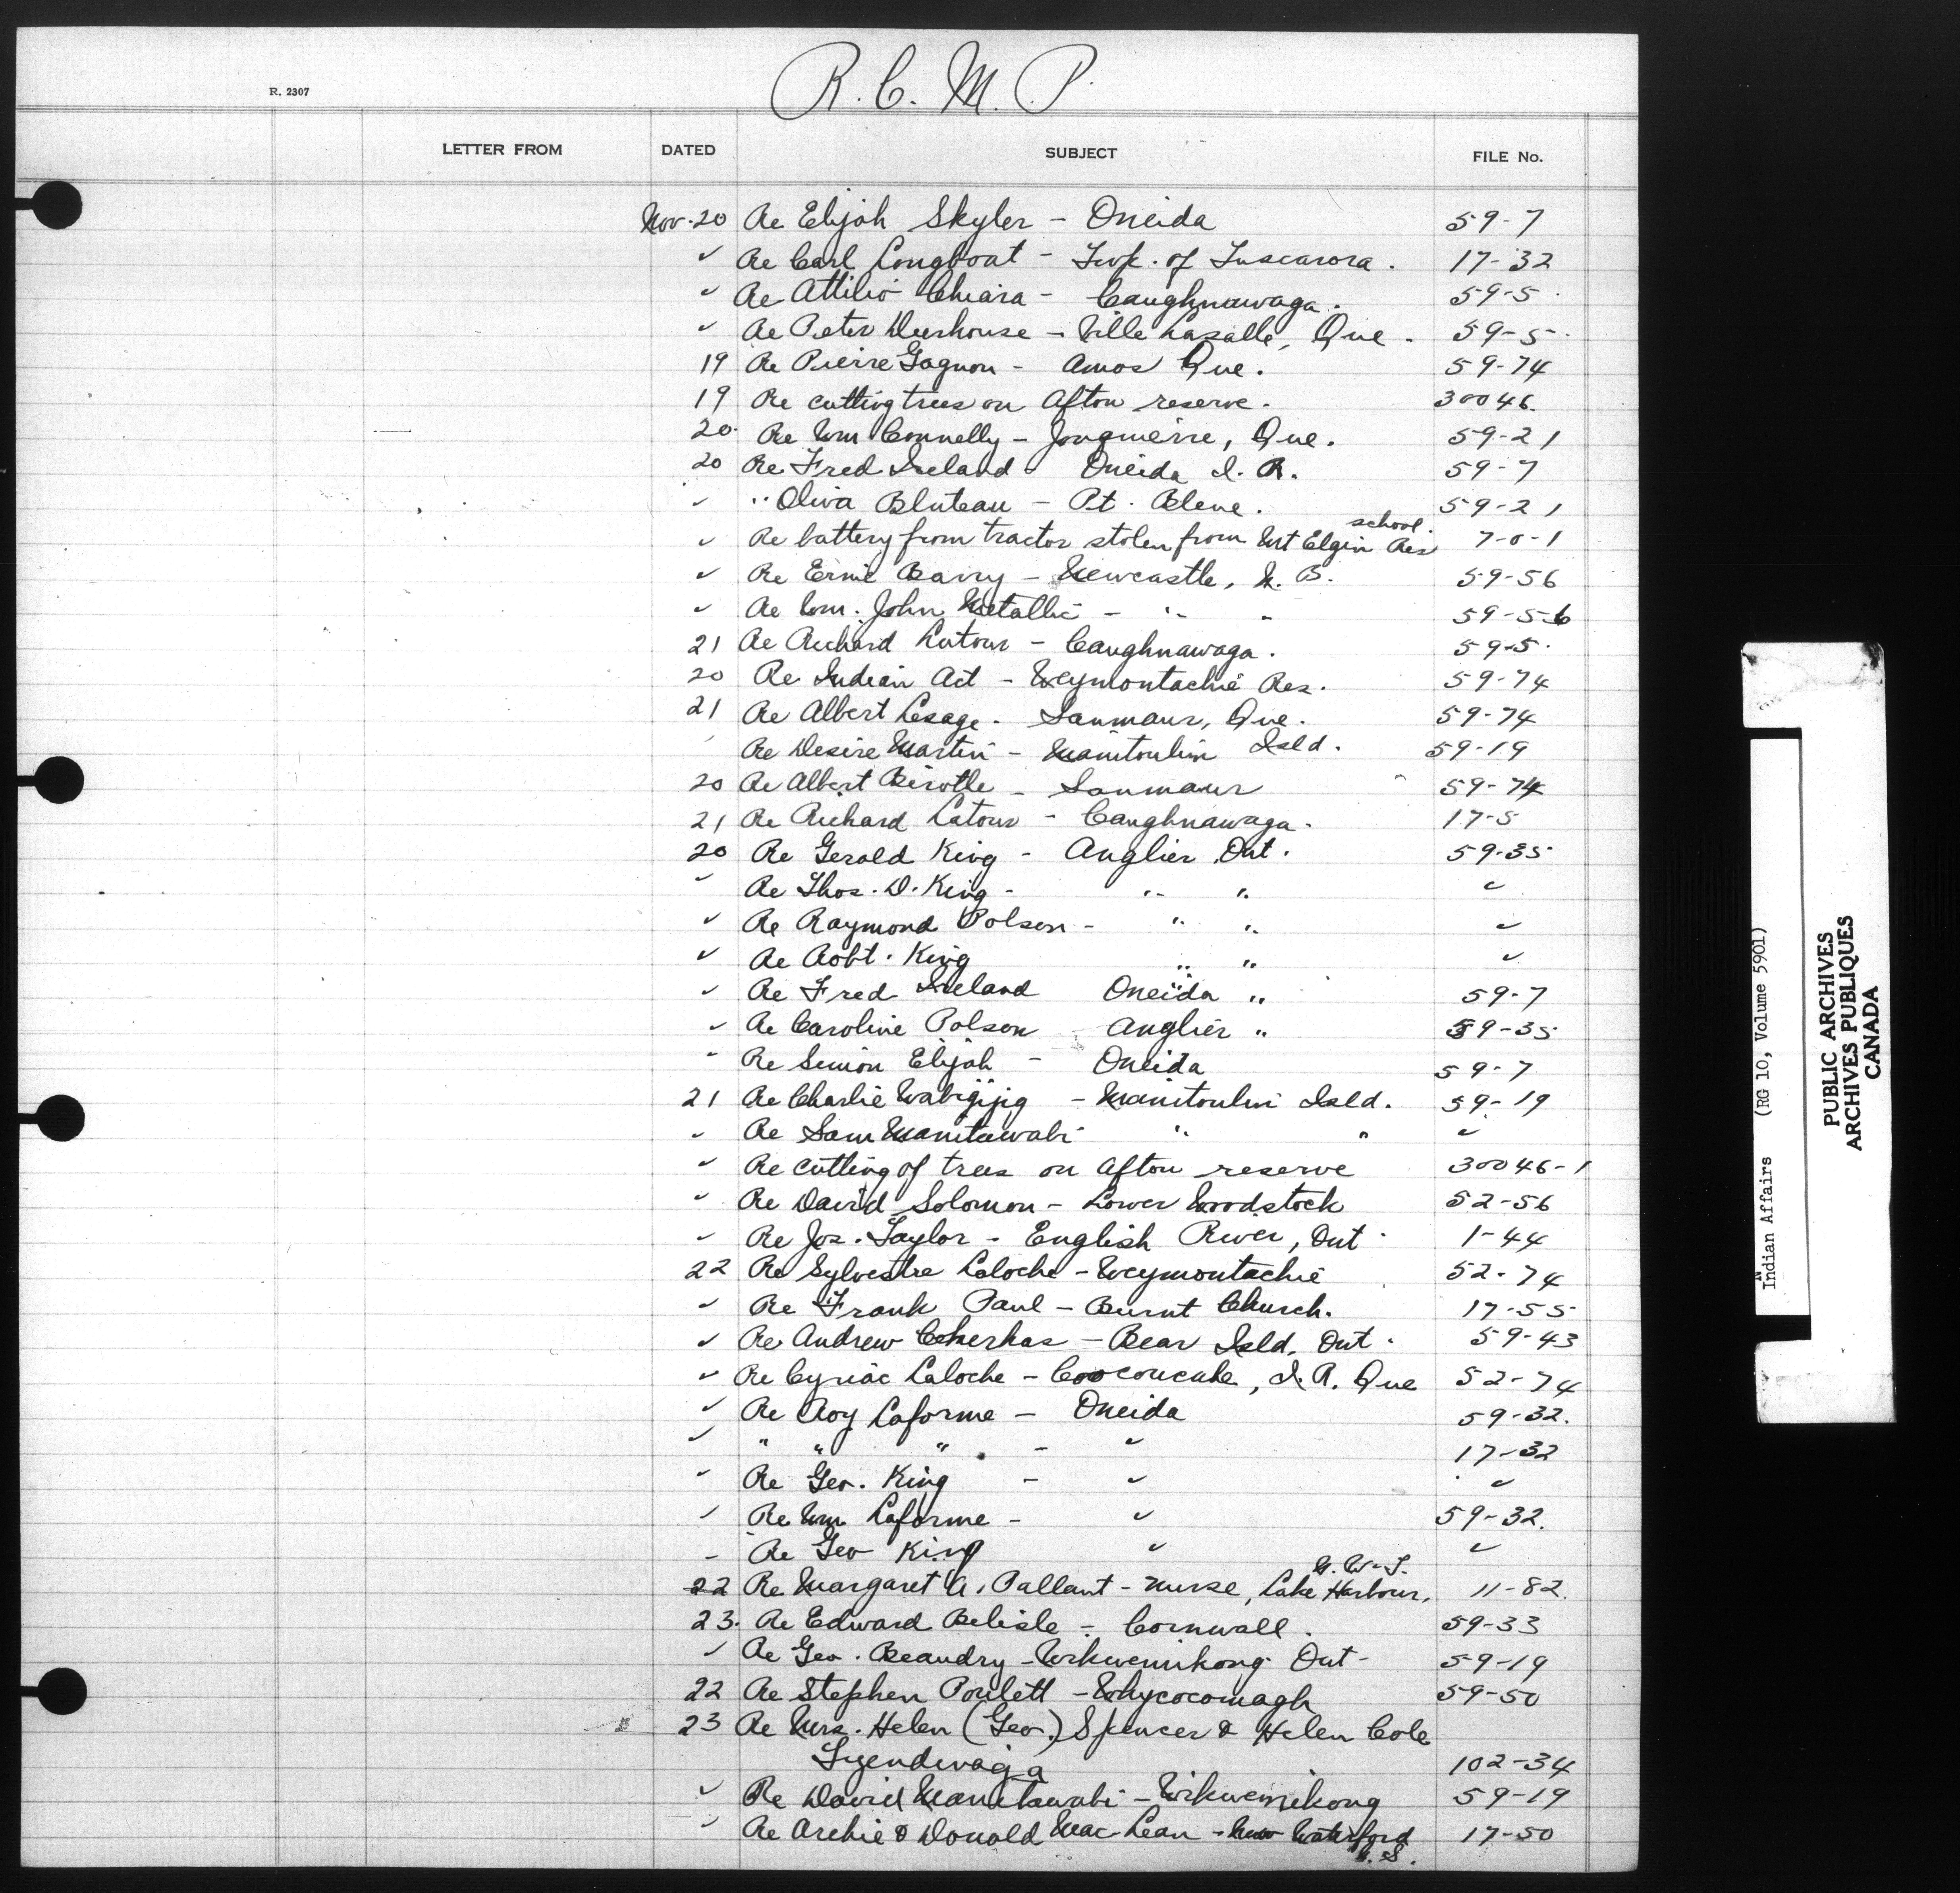 R. C. M. P.
R. 2307
LETTER FROM DATED SUBJECT FILE No.
Nov. 20 Re Elijah Skyler - Oneida 59-7
" Re Carl Longboat - Twp. of Tuscarora. 17-32
" Re Attilio Chiara - Caughnawaga. 59-5
" Re Peter Deerhouse - Ville Lasalle, Que. 59-5
19 Re Pierre Gagnon - Amos Que. 59-74
19 Re cutting trees on Afton reserve. 30046.
20. Re Wm Connelly - Jonquierre, Que. 59-21
20 Re Fred Ireland - Oneida I. R. 59-7
" " Oliva Bluteau - Pt. Bleue. 59-21
" Re battery from tractor stolen from Mt Elgin Res school. 7-0-1
" Re Ernie Barry - Newcastle, N. B. 59-56
" Re Wm. John Metallic - " " 59-56
21 Re Richard Latour - Caughnawaga. 59-5.
20 Re Indian Act - Weymontachie Res. 59-74
21 Re Albert Lesage. Sanmaur, Que. 59-74
' Re Desire Martin - Manitoulin Isld. 59-19
20 Re Albert - Sanmaur 59-74
21 Re Richard Latour - Caughnawaga. 17-5
20 Re Gerald King - Anglier Ont. 59-35
" Re Thos. D. King - " " "
" Re Raymond Polson - " " "
" Re Robt. King " " "
" Re Fred Ireland Oneida " 59-7
" Re Caroline Polson Anglier " 59-35
" Re Simon Elijah - Oneida 59-7
21 Re Charlie Wabigijig - Manitoulin Isld. 59-19
" Re Sam Manitowabi " " "
" Re cutting of trees on Afton reserve 30046-1
" Re David Solomon - Lower Woodstock 52-56
" Re Jos. Taylor - English River, Ont. 1-44
22 Re Sylvestre Laloche - Weymontachie 52-74
" Re Frank Paul - Burnt Church. 17-55
" Re Andrew - Bear Isld. Ont. 59-43
" Re Cyriac Laloche - , I. R. Que 52-74
" Re Roy Laforme - Oneida 59-32.
" " " " - " 17-32
" Re Geo. King - " "
" Re Wm Laforme - " 59-32.
" Re Geo King " "
22 Re Margaret A. Pallant - nurse, Lake Harbour, N. W. T. 11-82.
23. Re Edward Belisle - Cornwall. 59-33
" Re Geo. Beaudry - Wikwemikong Ont - 59-19
22 Re Stephen Poulett - Whycocomagh 59-50
23 Re Mrs. Helen (Geo.) Spencer & Helen Cole
Tyendinaga 102-34
" Re David Manitowabi - Wikwemikong 59-19
" Re Archie & Donald Mac Lean - New Waterford 17-50
N. S.
Indian Affairs (RG 10, Volume 5901)
PUBLIC ARCHIVES
ARCHIVES PUBLIQUES
CANADA